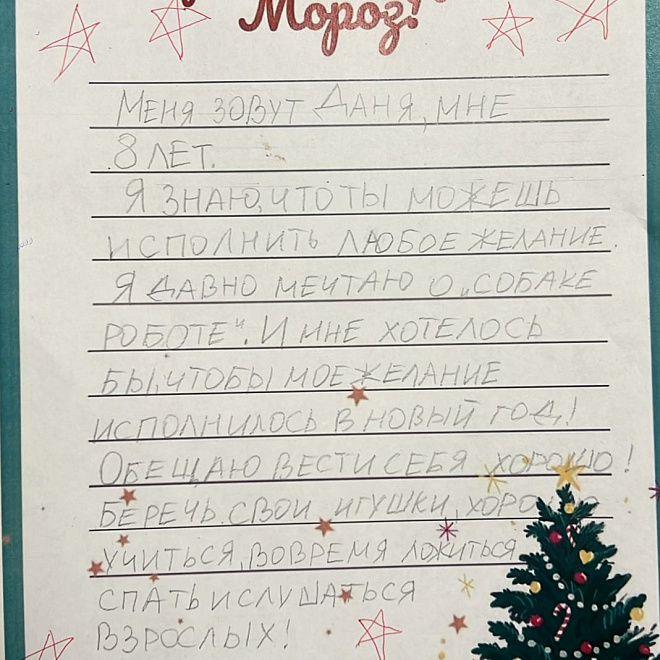 Мороз!
Меня зовут Даня, мне
8 лет.
Я знаю, что ты можешь
исполнить любое желание.
Я давно мечтаю о „собаке
роботе“. И мне хотелось
бы, чтобы мое желание
исполнилось в новый год!
Обещаю вести себя хорошо!
Беречь свои игушки, хорошо
учиться, вовремя ложиться
спать и слушаться
взрослых!